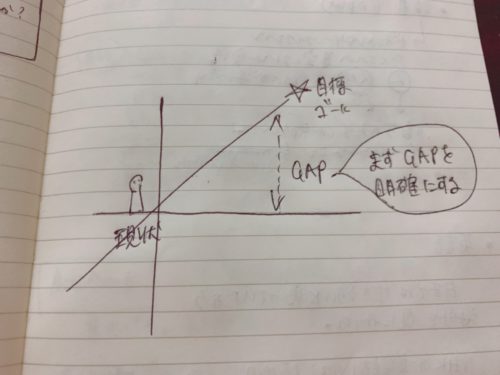 か?
目標
ゴール
GAP
まずGAPを
明確にする
現状